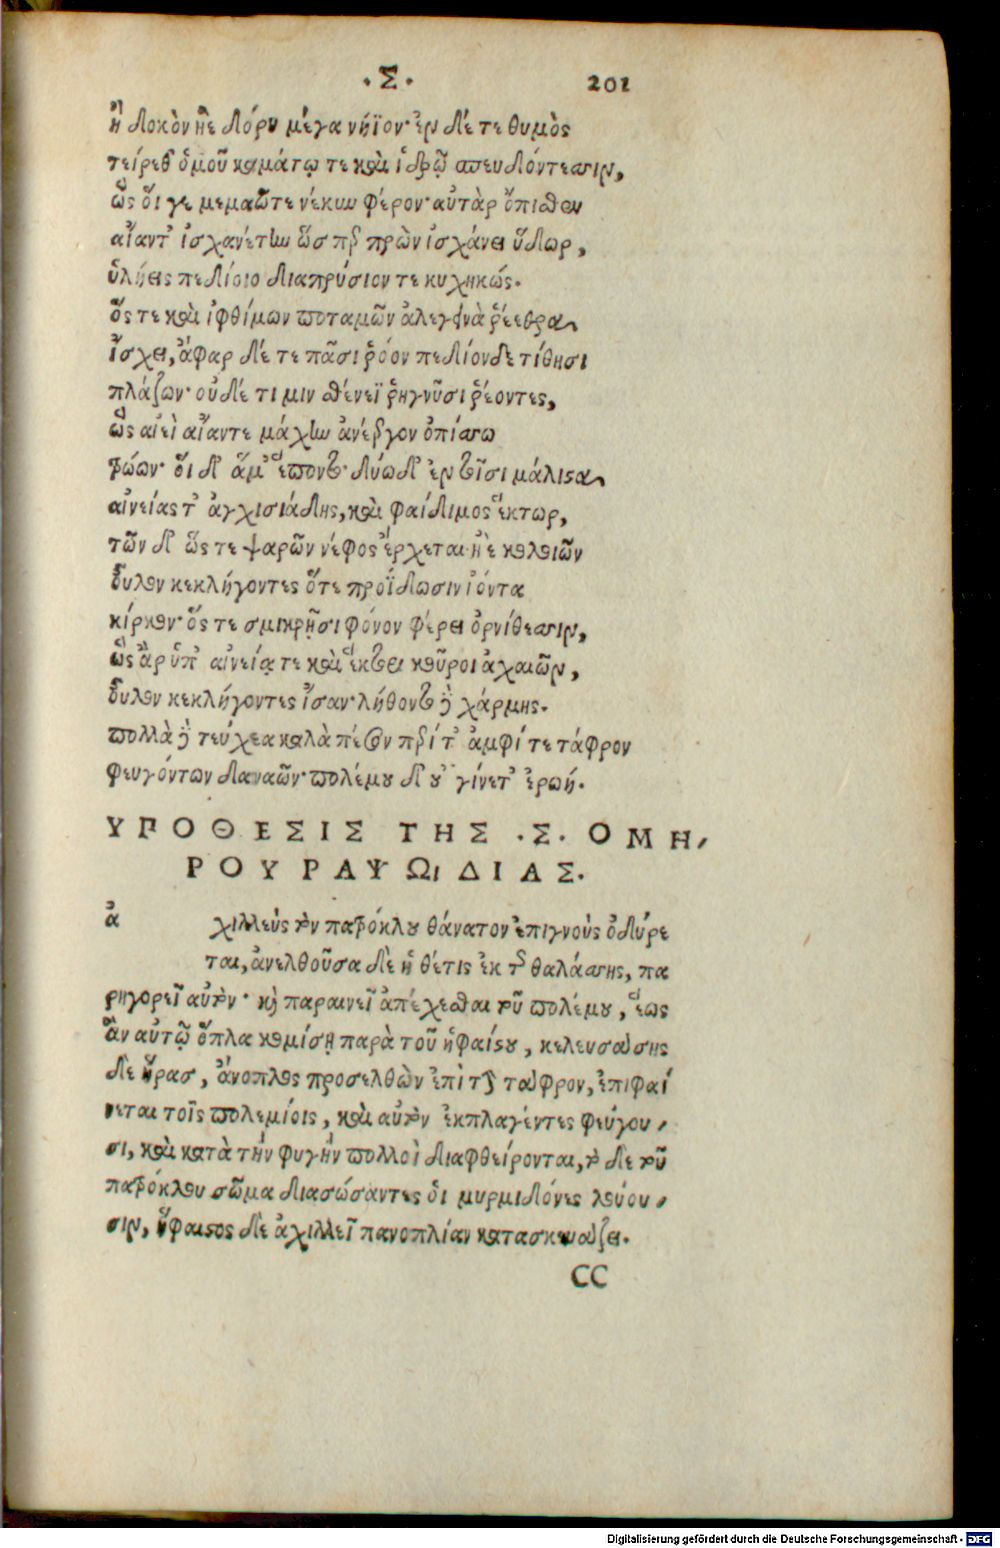 ·Σ· 201
ἢ δοκὸν ἠὲ δόρυ μέγα νήϊον· ἐν δέ τε θυμὸς
τείρεθ᾽ ὁμοῦ καμάτῳ τε καὶ ἱδρῷ σπευδόντεσσιν,
ὣς οἵ γε μεμαῶτε νέκυν φέρον· αὐτὰρ ὄπισθεν
αἴαντ᾽ ἰσχανέτην ὥσπερ πρὼν ἰσχάνει ὕδωρ,
ὑλήεις πεδίοιο διαπρύσιον τετυχηκώς.
ὅς τε καὶ ἰφθίμων ποταμῶν ἀλεγεινὰ ῥέεθρα
ἴσχει, ἄφαρ δέ τε πᾶσι ῥόον πεδίονδε τίθησι
πλάζων· οὐδέ τι μιν σθένεϊ ῥηγνῦσι ῥέοντες,
ὣς αἰεὶ αἴαντε μάχην ἀνέεργον ὀπίσσω
τρώων· οἱ δ᾽ ἅμ᾽ ἕποντο· δύω δ᾽ ἐν τοῖσι μάλιστα
αἰνείας τ᾽ ἀγχισιάδης, καὶ φαίδιμος ἕκτωρ,
τῶν δ᾽ ὥς τε ψαρῶν νέφος ἔρχεται ἠὲ κολοιῶν
οὖλον κεκλήγοντες ὅτε προΐδωσιν ἰόντα
κίρκον· ὅς τε σμικρῇσι φόνον φέρει ὀρνίθεσσιν,
ὣς ἂρ ὑπ᾽ αἰνείᾳ τε καὶ ἕκτορι κοῦροι ἀχαιῶν,
οὖλον κεκλήγοντες ἴσαν· λήθοντο δὲ χάρμης.
πολλὰ δὲ τεύχεα καλὰ πέσον περί τ᾽ ἀμφί τε τάφρον
φευγόντων δαναῶν· πολέμου δ᾽ οὐ γίνετ᾽ ἐρωή.
ΥΠΟΘΕΣΙΣ ΤΗΣ ·Σ· ΟΜΗ,
ΡΟΥ ΡΑΨΩΙΔΙΑΣ.
ἀ χιλλεὺς τὸν πατρόκλου θάνατον ἐπιγνοὺς ὀδύρε
ται, ἀνελθοῦσα δὲ ἡ θέτις ἐκ τῆς θαλάσσης, πα
ρηγορεῖ αὐτὸν· καὶ παραινεῖ ἀπέχεσθαι τοῦ πολέμου, ἕως
ἂν αὐτῷ ὅπλα κομίσῃ παρὰ τοῦ ἡφαίστου, κελευσάσης
δὲ ἥρασ, ἄνοπλος προσελθὼν ἐπὶ τὴν τάφρον, ἐπιφαί
νεται τοῖς πολεμίοις, καὶ αὐτὸν ἐκπλαγέντες φεύγου,
σι, καὶ κατὰ τὴν φυγὴν πολλοὶ διαφθείρονται, τὸ δὲ τοῦ
πατρόκλου σῶμα διασώσαντες οἱ μυρμιδόνες λούου,
σιν, ἥφαιστος δὲ ἀχιλλεῖ πανοπλίαν κατασκευάζει.
CC
Digitalisierung gefördert durch die Deutsche Forschungsgemeinschaft - DFG